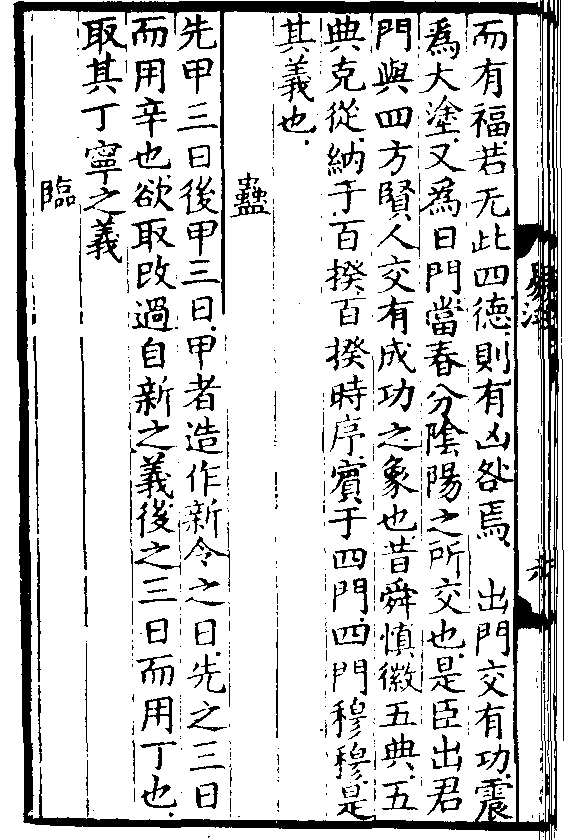 而有福若无此四德則有凶咎焉　出門交有功震
爲大塗又爲日門當春分陰陽之所交也是臣出君
門與四方賢人交有成功之象也昔舜慎徽五典五
典克從納于百揆百揆時序賓于四門四門穆穆是
其義也
蠱
先甲三日後甲三日甲者造作新令之日先之三日
而用辛也欲取改過自新之義後之三日而用丁也
取其丁寧之義
臨